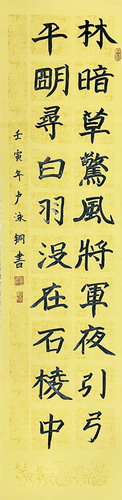 林暗草驚風將軍夜引弓
平明尋白羽沒在石棱中
壬寅年卢泳钢書